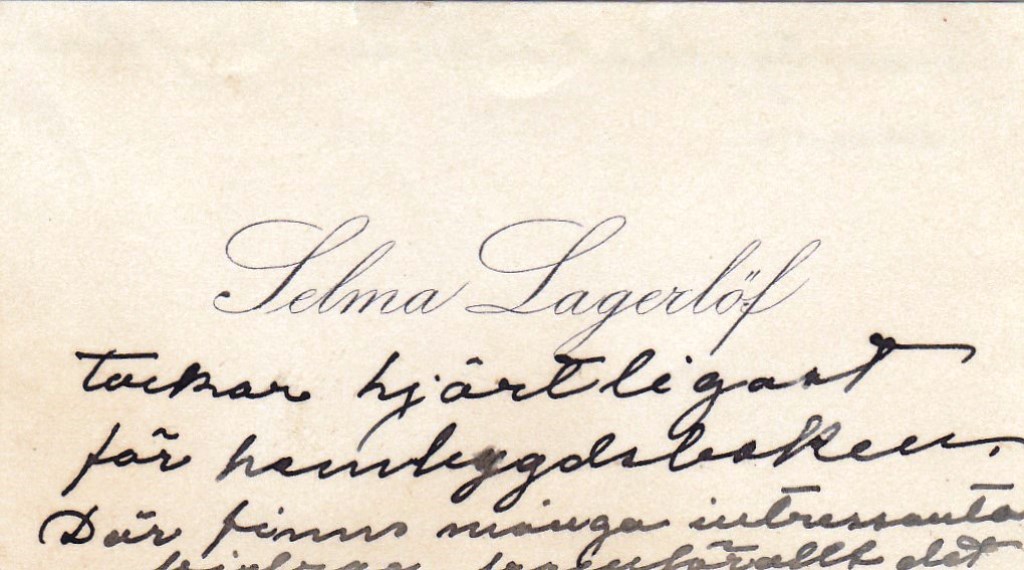 Selma Lagerlöf
tackar hjärtligast
för hembygdsboken.
Där finns många intressanta
bidrag framförallt det